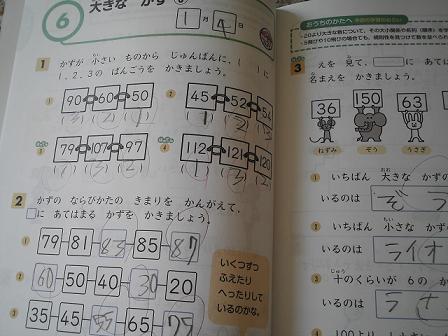 6
大きな かず
1月 4日
1 かずが 小さい ものから じゅんばんに、( )に
1、2、3の ばんごうを かきましょう。
① 90 60 50
② 45 52 54
③ 79 107 97
(1) (3) (2)
④ 112 121 120
(1) (3) (2)
2 かずの ならびかたの きまりを かんがえて、
□に あてはまる かずを かきましょう。
① 79 81 83 85 87
② 60 50 40 30 20
③ 35 45 55 65 75
いくつずつ
ふえたり
へったりして
いるのかな。
おうちのかたへ
3 えを 見て、 に あて
名まえを かきましょう
36 150 63
ねずみ ぞう うさぎ
① いちばん 大きな かずの
いるのは ぞう
② いちばん 小さな かず
いるのは ライオ
③ 十のくらいが 6の か
いるのは
④ 100より